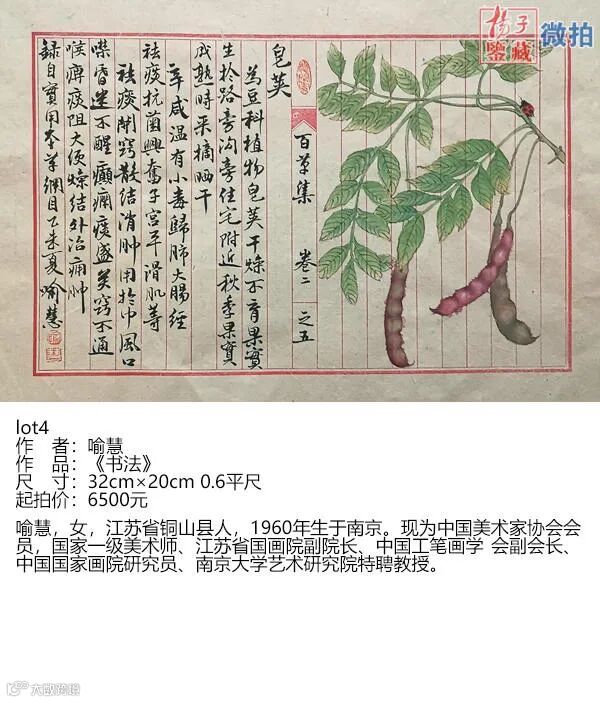 揚子
鑒藏
微拍
皂莢
為豆科植物皂莢干燥不育果實
生於路旁沟旁住宅附近秋季果實
成熟時采摘晒干
辛咸温有小毒歸肺大腸經
祛痰抗菌興奮子宫平滑肌等
祛痰開窍散结消肿用於中風口
噤昏迷不醒癲痫痰盛关窍不通
喉痹痰阻大便燥结外治痈肿
録自實用本草綱目乙未夏喻慧
百草集 卷二 之五
lot4
作 者：喻慧
作 品：《书法》
尺 寸：32cm×20cm 0.6平尺
起拍价：6500元
喻慧，女，江苏省铜山县人，1960年生于南京。现为中国美术家协会会
员，国家一级美术师、江苏省国画院副院长、中国工笔画学 会副会长、
中国国家画院研究员、南京大学艺术研究院特聘教授。
大数跨境